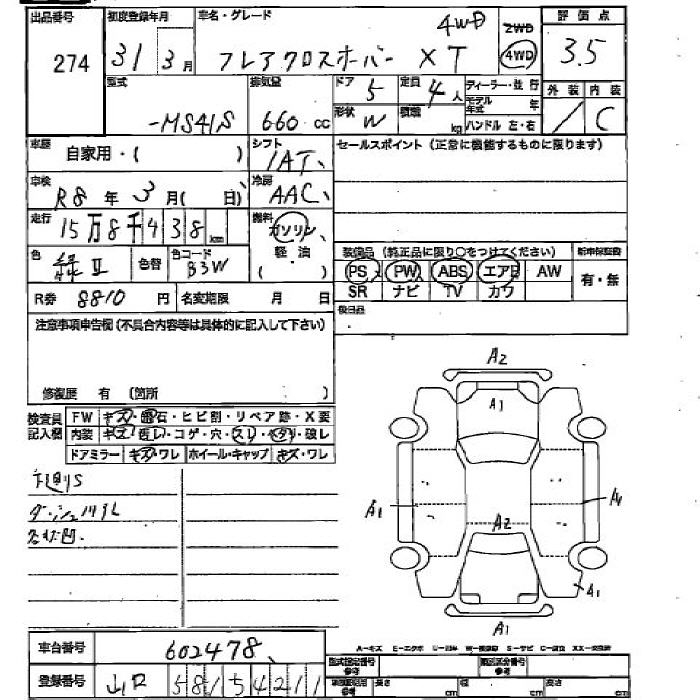 出品番号 初度登録年月 車名・グレード 4WD 2WD 評価点
274 31 3月 フレアクロスオーバー XT 4WD 3.5
型式 排気量 ドア 5 定員 4人 ディーラー・並行 外装 内装
モデル年式 年
-MS41S 660cc 形状 W 積載 kg ハンドル 左・右 C
車歴 自家用・( ) シフト IAT セールスポイント (正常に機能するものに限ります)
車検 R8年 3月( 日) 冷房 AAC
走行 15万8千438km 燃料 ガソリン
軽油
( )
色 緑II 色替 色コード B3W 装備品 (純正品に限り○をつけてください) 新車保証書
PS PW ABS エアB AW 有・無
SR ナビ TV カワ
R券 8810円 名変期限 月 日 後日品
注意事項申告欄 (不具合内容等は具体的に記入して下さい)
修復歴 有 (箇所 )
検査員記入欄 FW キズ・飛石・ヒビ割・リペア跡・X要
内装 キズ・汚れ・コゲ・穴・スレ・ヘタリ・破レ
ドアミラー キズ・ワレ ホイール・キャップ キズ・ワレ
A2
A1
A1
A2
A1
A1
車台番号 602478
登録番号 山口 581 5 4211
型式指定番号 参考 類別区分番号 参考
参考 長さ cm 幅 cm 高さ cm